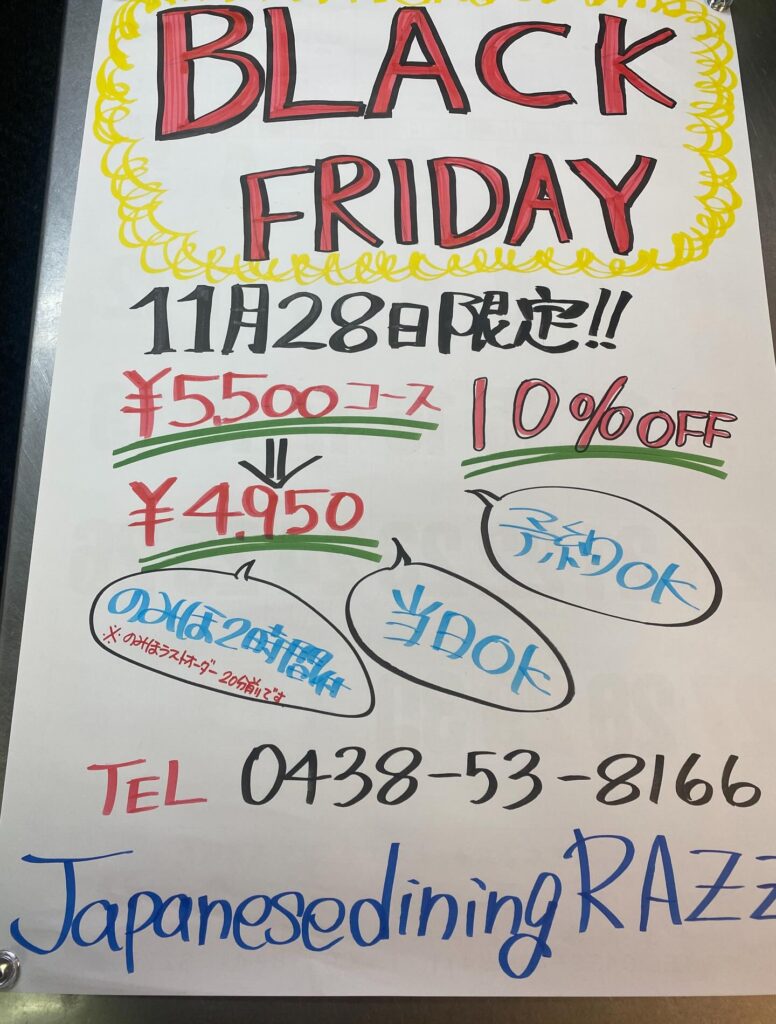 BLACK
FRIDAY
11月28日限定!!
¥5,500コース
10%OFF
⇓
¥4,950
予約OK
のみほ2時間付
※のみほラストオーダー20分前です
当日OK
TEL 0438-53-8166
Japanesedining RAZZ